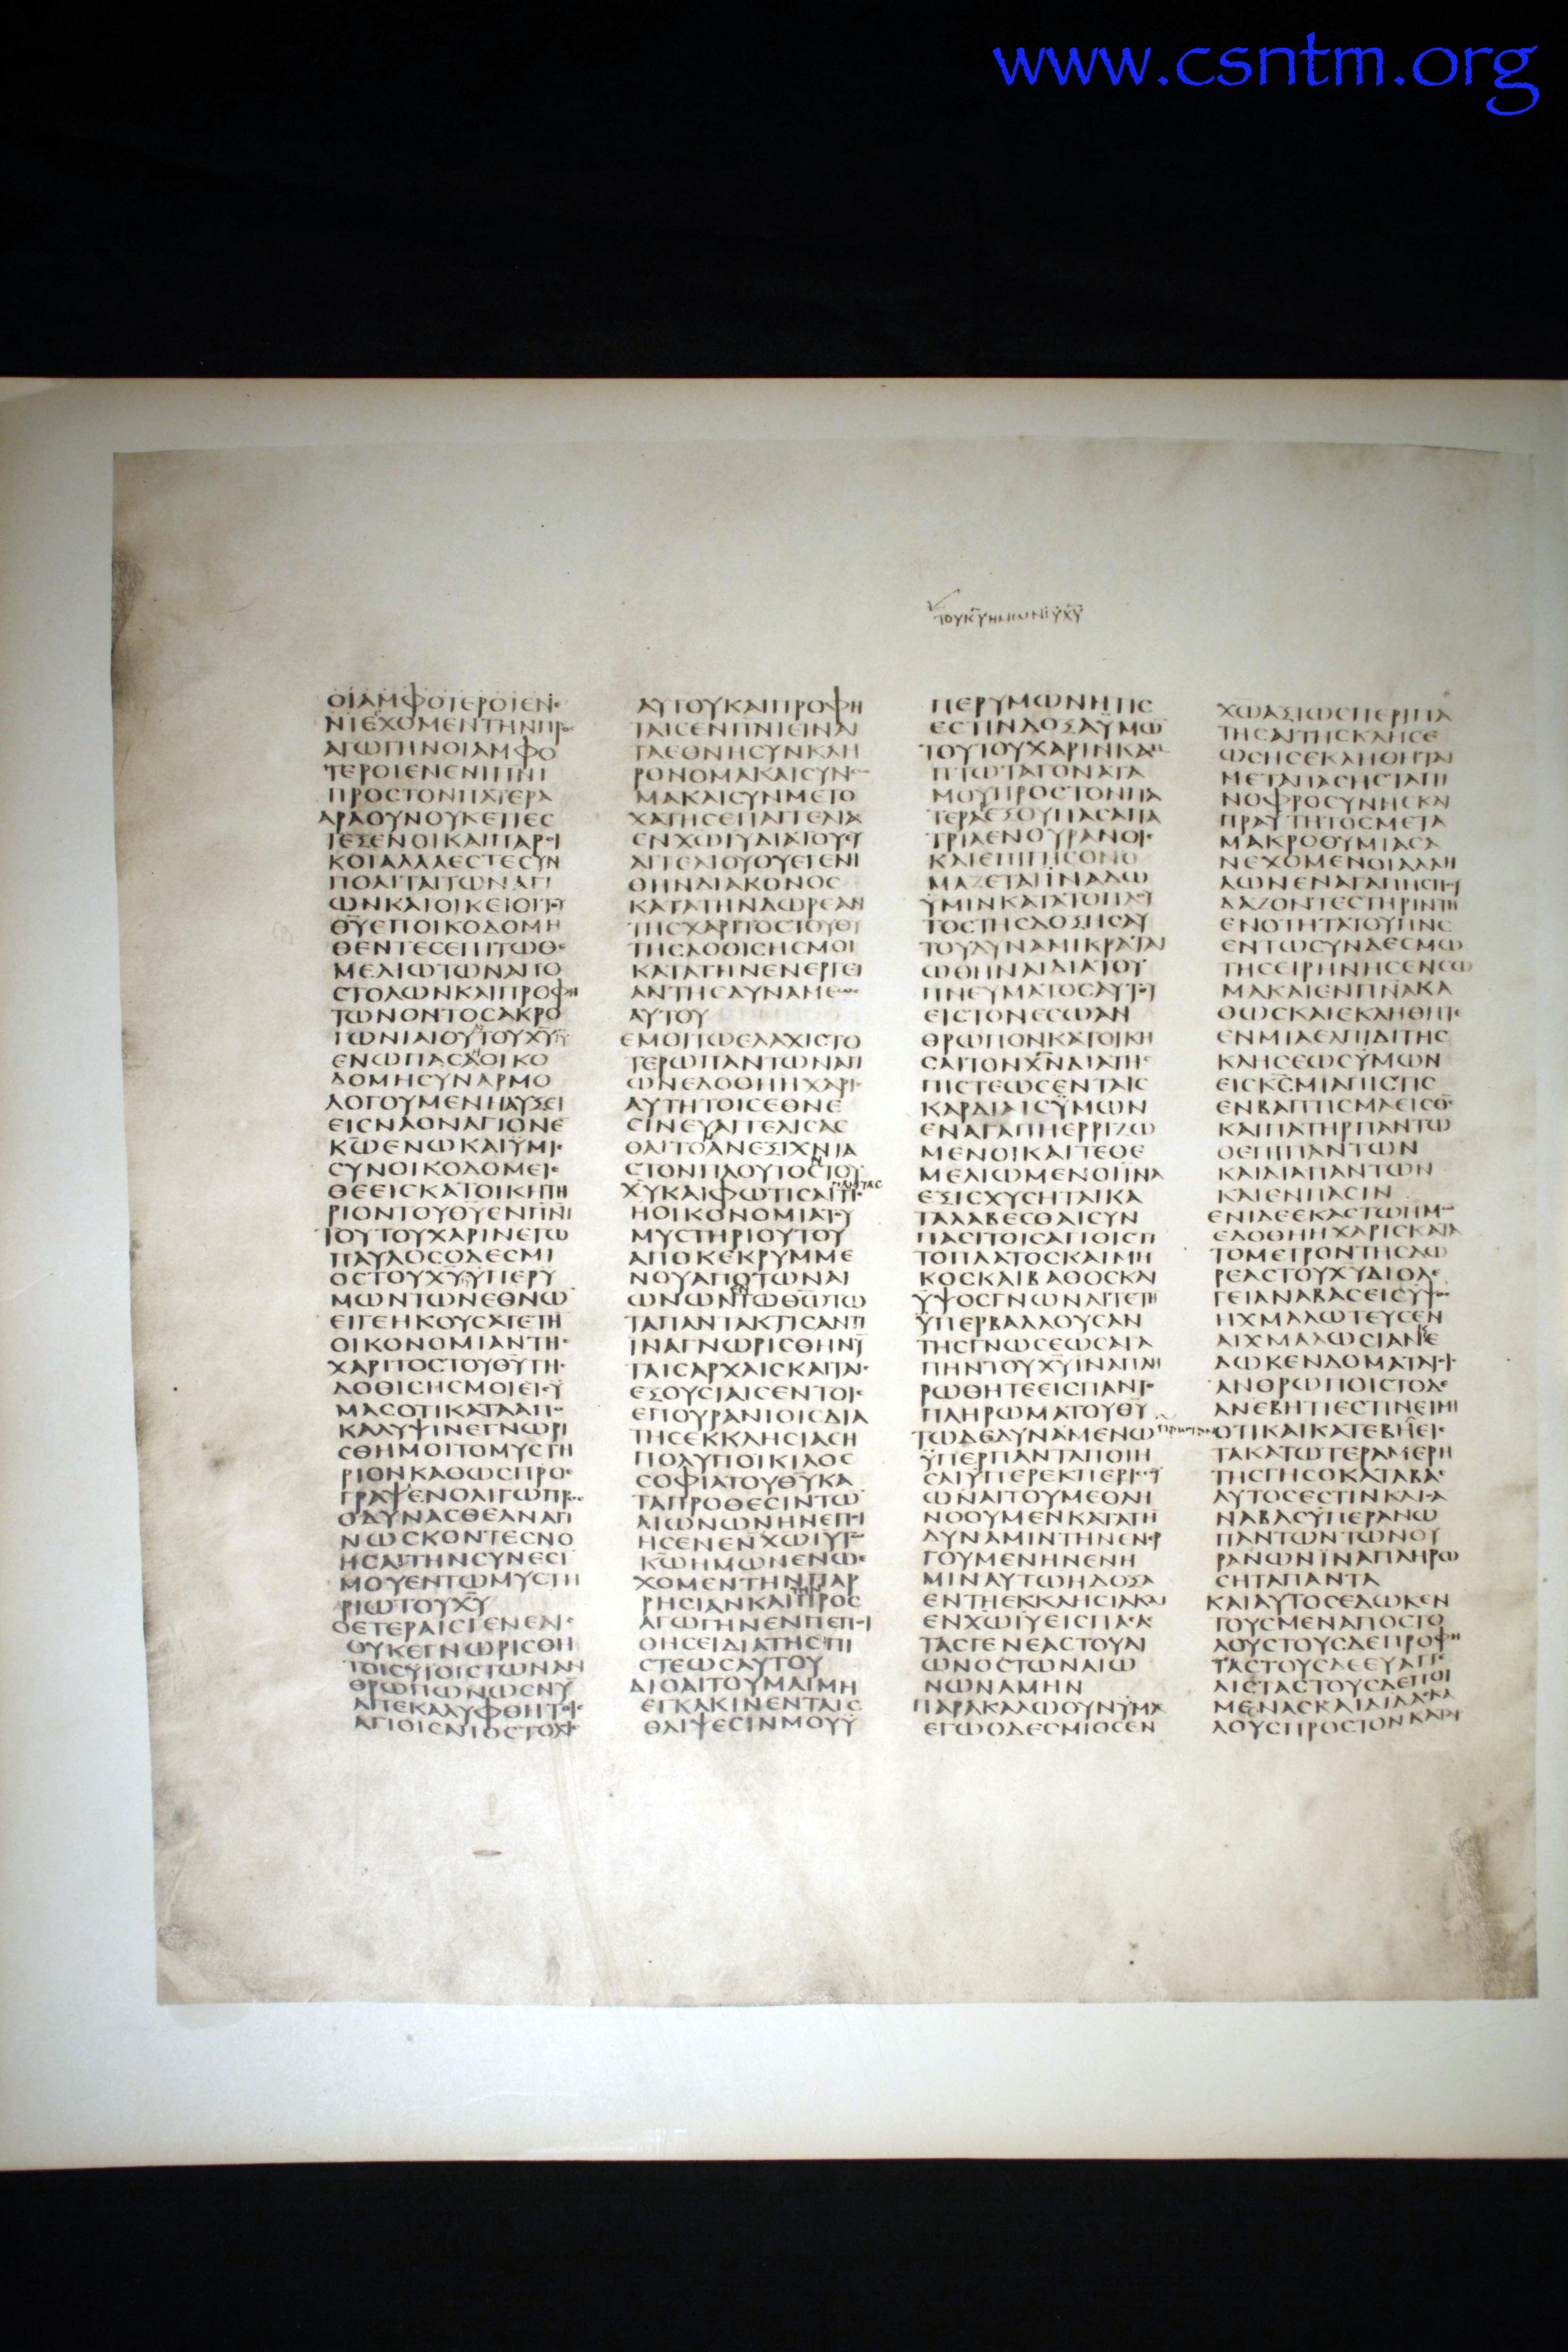 www.csntm.org
ΤΟΥΚΥΗΜΩΝΙΥΧΥ
ΟΙΑΜΦΟΤΕΡΟΙΕΝΕ
ΝΙΕΧΟΜΕΝΤΗΝΠΡΟ
ΑΓΩΓΗΝΟΙΑΜΦΟ
ΤΕΡΟΙΕΝΕΝΙΠΝΙ
ΠΡΟΣΤΟΝΠΑΤΕΡΑ
ΑΡΑΟΥΝΟΥΚΕΤΙΕΣ
ΤΕΞΕΝΟΙΚΑΙΠΑΡΟΙ
ΚΟΙΑΛΛΑΕΣΤΕΣΥΝ
ΠΟΛΙΤΑΙΤΩΝΑΓΙ
ΩΝΚΑΙΟΙΚΕΙΟΙΤΟΥ
ΘΥΕΠΟΙΚΟΔΟΜΗ
ΘΕΝΤΕΣΕΠΙΤΩΘΕ
ΜΕΛΙΩΤΩΝΑΠΟ
ΣΤΟΛΩΝΚΑΙΠΡΟΦΗ
ΤΩΝΟΝΤΟΣΑΚΡΟ
ΓΩΝΙΑΙΟΥΤΟΥΧΥ
ΕΝΩΠΑΣΑΟΙΚΟ
ΔΟΜΗΣΥΝΑΡΜΟ
ΛΟΓΟΥΜΕΝΗΑΥΞΕΙ
ΕΙΣΝΑΟΝΑΓΙΟΝΕ
ΚΩΕΝΩΚΑΙΥΜΙΣ
ΣΥΝΟΙΚΟΔΟΜΕΙΣ
ΘΕΕΙΣΚΑΤΟΙΚΗΤΗ
ΡΙΟΝΤΟΥΘΥΕΝΠΝΙ
ΤΟΥΤΟΥΧΑΡΙΝΕΓΩ
ΠΑΥΛΟΣΟΔΕΣΜΙ
ΟΣΤΟΥΧΥΥΠΕΡΥ
ΜΩΝΤΩΝΕΘΝΩ
ΕΙΓΕΗΚΟΥΣΑΤΕΤΗ
ΟΙΚΟΝΟΜΙΑΝΤΗΣ
ΧΑΡΙΤΟΣΤΟΥΘΥΤΗΣ
ΔΟΘΙΣΗΣΜΟΙΕΙΣΥ
ΜΑΣΟΤΙΚΑΤΑΑΠΟ
ΚΑΛΥΨΙΝΕΓΝΩΡΙ
ΣΘΗΜΟΙΤΟΜΥΣΤΗ
ΡΙΟΝΚΑΘΩΣΠΡΟΕ
ΓΡΑΨΕΝΟΛΙΓΩΠΡΟΣ
ΟΔΥΝΑΣΘΕΑΝΑΓΙ
ΝΩΣΚΟΝΤΕΣΝΟ
ΗΣΑΙΤΗΝΣΥΝΕΣΙ
ΜΟΥΕΝΤΩΜΥΣΤΗ
ΡΙΩΤΟΥΧΥ
ΟΕΤΕΡΑΙΣΓΕΝΕΑΙΣ
ΟΥΚΕΓΝΩΡΙΣΘΗ
ΤΟΙΣΥΙΟΙΣΤΩΝΑΝ
ΘΡΩΠΩΝΩΣΝΥ
ΑΠΕΚΑΛΥΦΘΗΤΟΙΣ
ΑΓΙΟΙΣΑΠΟΣΤΟΛΟΙΣ
ΑΥΤΟΥΚΑΙΠΡΟΦΗ
ΤΑΙΣΕΝΠΝΙΕΙΝΑΙ
ΤΑΕΘΝΗΣΥΝΚΛΗ
ΡΟΝΟΜΑΚΑΙΣΥΝΣΩ
ΜΑΚΑΙΣΥΝΜΕΤΟ
ΧΑΤΗΣΕΠΑΓΓΕΛΙΑ
ΕΝΧΩΙΥΔΙΑΤΟΥΕΥ
ΑΓΓΕΛΙΟΥΟΥΕΓΕΝΗ
ΘΗΝΔΙΑΚΟΝΟΣ
ΚΑΤΑΤΗΝΔΩΡΕΑΝ
ΤΗΣΧΑΡΙΤΟΣΤΟΥΘΥ
ΤΗΣΔΟΘΙΣΗΣΜΟΙ
ΚΑΤΑΤΗΝΕΝΕΡΓΕΙ
ΑΝΤΗΣΔΥΝΑΜΕΩΣ
ΑΥΤΟΥ
ΕΜΟΙΤΩΕΛΑΧΙΣΤΟ
ΤΕΡΩΠΑΝΤΩΝΑΓΙ
ΩΝΕΔΟΘΗΗΧΑΡΙΣ
ΑΥΤΗΤΟΙΣΕΘΝΕ
ΣΙΝΕΥΑΓΓΕΛΙΣΑΣ
ΘΑΙΤΟΑΝΕΞΙΧΝΙΑ
ΣΤΟΝΠΛΟΥΤΟΣΤΟΥ
ΧΥΚΑΙΦΩΤΙΣΑΙΤΙΣ ΠΑΝΤΑΣ
ΗΟΙΚΟΝΟΜΙΑΤΟΥ
ΜΥΣΤΗΡΙΟΥΤΟΥ
ΑΠΟΚΕΚΡΥΜΜΕ
ΝΟΥΑΠΟΤΩΝΑΙ
ΩΝΩΝΤΩΘΩΤΩ
ΤΑΠΑΝΤΑΚΤΙΣΑΝΤΙ
ΙΝΑΓΝΩΡΙΣΘΗΝΥ
ΤΑΙΣΑΡΧΑΙΣΚΑΙΤΑΙΣ
ΕΞΟΥΣΙΑΙΣΕΝΤΟΙΣ
ΕΠΟΥΡΑΝΙΟΙΣΔΙΑ
ΤΗΣΕΚΚΛΗΣΙΑΣΗ
ΠΟΛΥΠΟΙΚΙΛΟΣ
ΣΟΦΙΑΤΟΥΘΥΚΑ
ΤΑΠΡΟΘΕΣΙΝΤΩ
ΑΙΩΝΩΝΗΝΕΠΟΙ
ΗΣΕΝΕΝΧΩΙΥΤΩ
ΚΩΗΜΩΝΕΝΩΕ
ΧΟΜΕΝΤΗΝΠΑΡ
ΡΗΣΙΑΝΚΑΙΠΡΟΣ
ΑΓΩΓΗΝΕΝΠΕΠΟΙ
ΘΗΣΕΙΔΙΑΤΗΣΠΙ
ΣΤΕΩΣΑΥΤΟΥ
ΔΙΟΑΙΤΟΥΜΑΙΜΗ
ΕΓΚΑΚΙΝΕΝΤΑΙΣ
ΘΛΙΨΕΣΙΝΜΟΥΥ
ΠΕΡΥΜΩΝΗΤΙΣ
ΕΣΤΙΝΔΟΞΑΥΜΩ
ΤΟΥΤΟΥΧΑΡΙΝΚΑΜ
ΠΤΩΤΑΓΟΝΑΤΑ
ΜΟΥΠΡΟΣΤΟΝΠΑ
ΤΕΡΑΕΞΟΥΠΑΣΑΠΑ
ΤΡΙΑΕΝΟΥΡΑΝΟΙΣ
ΚΑΙΕΠΙΓΗΣΟΝΟ
ΜΑΖΕΤΑΙΙΝΑΔΩ
ΥΜΙΝΚΑΤΑΤΟΠΛΟΥ
ΤΟΣΤΗΣΔΟΞΗΣΑΥ
ΤΟΥΔΥΝΑΜΙΚΡΑΤΑΙ
ΩΘΗΝΑΙΔΙΑΤΟΥ
ΠΝΕΥΜΑΤΟΣΑΥΤΟΥ
ΕΙΣΤΟΝΕΣΩΑΝ
ΘΡΩΠΟΝΚΑΤΟΙΚΗ
ΣΑΙΤΟΝΧΝΔΙΑΤΗΣ
ΠΙΣΤΕΩΣΕΝΤΑΙΣ
ΚΑΡΔΙΑΙΣΥΜΩΝ
ΕΝΑΓΑΠΗΕΡΡΙΖΩ
ΜΕΝΟΙΚΑΙΤΕΘΕ
ΜΕΛΙΩΜΕΝΟΙΙΝΑ
ΕΞΙΣΧΥΣΗΤΑΙΚΑ
ΤΑΛΑΒΕΣΘΑΙΣΥΝ
ΠΑΣΙΤΟΙΣΑΓΙΟΙΣΤΙ
ΤΟΠΛΑΤΟΣΚΑΙΜΗ
ΚΟΣΚΑΙΒΑΘΟΣΚΑΙ
ΥΨΟΣΓΝΩΝΑΙΤΕΤΗ
ΥΠΕΡΒΑΛΛΟΥΣΑΝ
ΤΗΣΓΝΩΣΕΩΣΑΓΑ
ΠΗΝΤΟΥΧΥΙΝΑΠΛΗ
ΡΩΘΗΤΕΕΙΣΠΑΝΤΟ
ΠΛΗΡΩΜΑΤΟΥΘΥ
ΤΩΔΕΔΥΝΑΜΕΝΩ
ΥΠΕΡΠΑΝΤΑΠΟΙΗ
ΣΑΙΥΠΕΡΕΚΠΕΡΙΣΣΟΥ
ΩΝΑΙΤΟΥΜΕΘΑΗ
ΝΟΟΥΜΕΝΚΑΤΑΤΗ
ΔΥΝΑΜΙΝΤΗΝΕΝΕΡ
ΓΟΥΜΕΝΗΝΕΝΗ
ΜΙΝΑΥΤΩΗΔΟΞΑ
ΕΝΤΗΕΚΚΛΗΣΙΑΚΑΙ
ΕΝΧΩΙΥΕΙΣΠΑΣΑΣ
ΤΑΣΓΕΝΕΑΣΤΟΥΑΙ
ΩΝΟΣΤΩΝΑΙΩ
ΝΩΝΑΜΗΝ
ΠΑΡΑΚΑΛΩΟΥΝΥΜΑΣ
ΕΓΩΟΔΕΣΜΙΟΣΕΝ
ΧΩΑΞΙΩΣΠΕΡΙΠΑ
ΤΗΣΑΙΤΗΣΚΛΗΣΕ
ΩΣΗΣΕΚΛΗΘΗΤΑΙ
ΜΕΤΑΠΑΣΗΣΤΑΠΙ
ΝΟΦΡΟΣΥΝΗΣΚΑΙ
ΠΡΑΥΤΗΤΟΣΜΕΤΑ
ΜΑΚΡΟΘΥΜΙΑΣΑ
ΝΕΧΟΜΕΝΟΙΑΛΛΗ
ΛΩΝΕΝΑΓΑΠΗΣΠΟΥ
ΔΑΖΟΝΤΕΣΤΗΡΙΝΤΗ
ΕΝΟΤΗΤΑΤΟΥΠΝΣ
ΕΝΤΩΣΥΝΔΕΣΜΩ
ΤΗΣΕΙΡΗΝΗΣΕΝΣΩ
ΜΑΚΑΙΕΝΠΝΑΚΑ
ΘΩΣΚΑΙΕΚΛΗΘΗΤΕ
ΕΝΜΙΑΕΛΠΙΔΙΤΗΣ
ΚΛΗΣΕΩΣΥΜΩΝ
ΕΙΣΚΣΜΙΑΠΙΣΤΙΣ
ΕΝΒΑΠΤΙΣΜΑΕΙΣΘΣ
ΚΑΙΠΑΤΗΡΠΑΝΤΩ
ΟΕΠΙΠΑΝΤΩΝ
ΚΑΙΔΙΑΠΑΝΤΩΝ
ΚΑΙΕΝΠΑΣΙΝ
ΕΝΙΔΕΕΚΑΣΤΩΗΜΩ
ΕΔΟΘΗΗΧΑΡΙΣΚΑΤΑ
ΤΟΜΕΤΡΟΝΤΗΣΔΩ
ΡΕΑΣΤΟΥΧΥΔΙΟΛΕ
ΓΕΙΑΝΑΒΑΣΕΙΣΥΨΟΣ
ΗΧΜΑΛΩΤΕΥΣΕΝ
ΑΙΧΜΑΛΩΣΙΑΝΕ
ΔΩΚΕΝΔΟΜΑΤΑΤΟΙΣ
ΑΝΘΡΩΠΟΙΣΤΟΔΕ
ΑΝΕΒΗΤΙΕΣΤΙΝΕΙΜΗ
ΟΤΙΚΑΙΚΑΤΕΒΗΕΙΣ
ΤΑΚΑΤΩΤΕΡΑΜΕΡΗ
ΤΗΣΓΗΣΟΚΑΤΑΒΑΣ
ΑΥΤΟΣΕΣΤΙΝΚΑΙΟΑ
ΝΑΒΑΣΥΠΕΡΑΝΩ
ΠΑΝΤΩΝΤΩΝΟΥ
ΡΑΝΩΝΙΝΑΠΛΗΡΩ
ΣΗΤΑΠΑΝΤΑ
ΚΑΙΑΥΤΟΣΕΔΩΚΕΝ
ΤΟΥΣΜΕΝΑΠΟΣΤΟ
ΛΟΥΣΤΟΥΣΔΕΠΡΟΦΗ
ΤΑΣΤΟΥΣΔΕΕΥΑΓΓΕ
ΛΙΣΤΑΣΤΟΥΣΔΕΠΟΙ
ΜΕΝΑΣΚΑΙΔΙΔΑΣΚΑ
ΛΟΥΣΠΡΟΣΤΟΝΚΑΤΑΡ